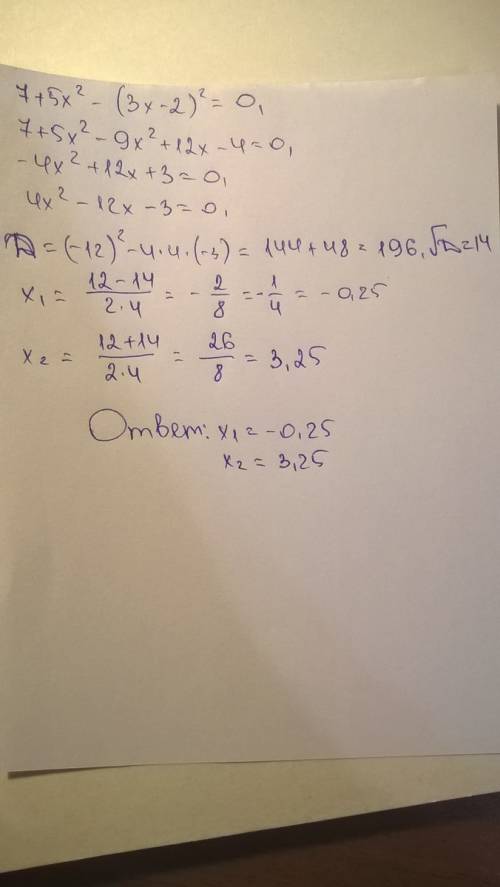 7+5x² - (3x-2)² = 0,
7+5x² - 9x² + 12x - 4 = 0,
-4x² + 12x + 3 = 0,
4x² - 12x - 3 = 0,
D = (-12)² - 4·4·(-3) = 144 + 48 = 196, √D = 14
x₁ = (12-14)/(2·4) = - 2/8 = - 1/4 = - 0,25
x₂ = (12+14)/(2·4) = 26/8 = 3,25
Ответ: x₁ = -0,25
x₂ = 3,25